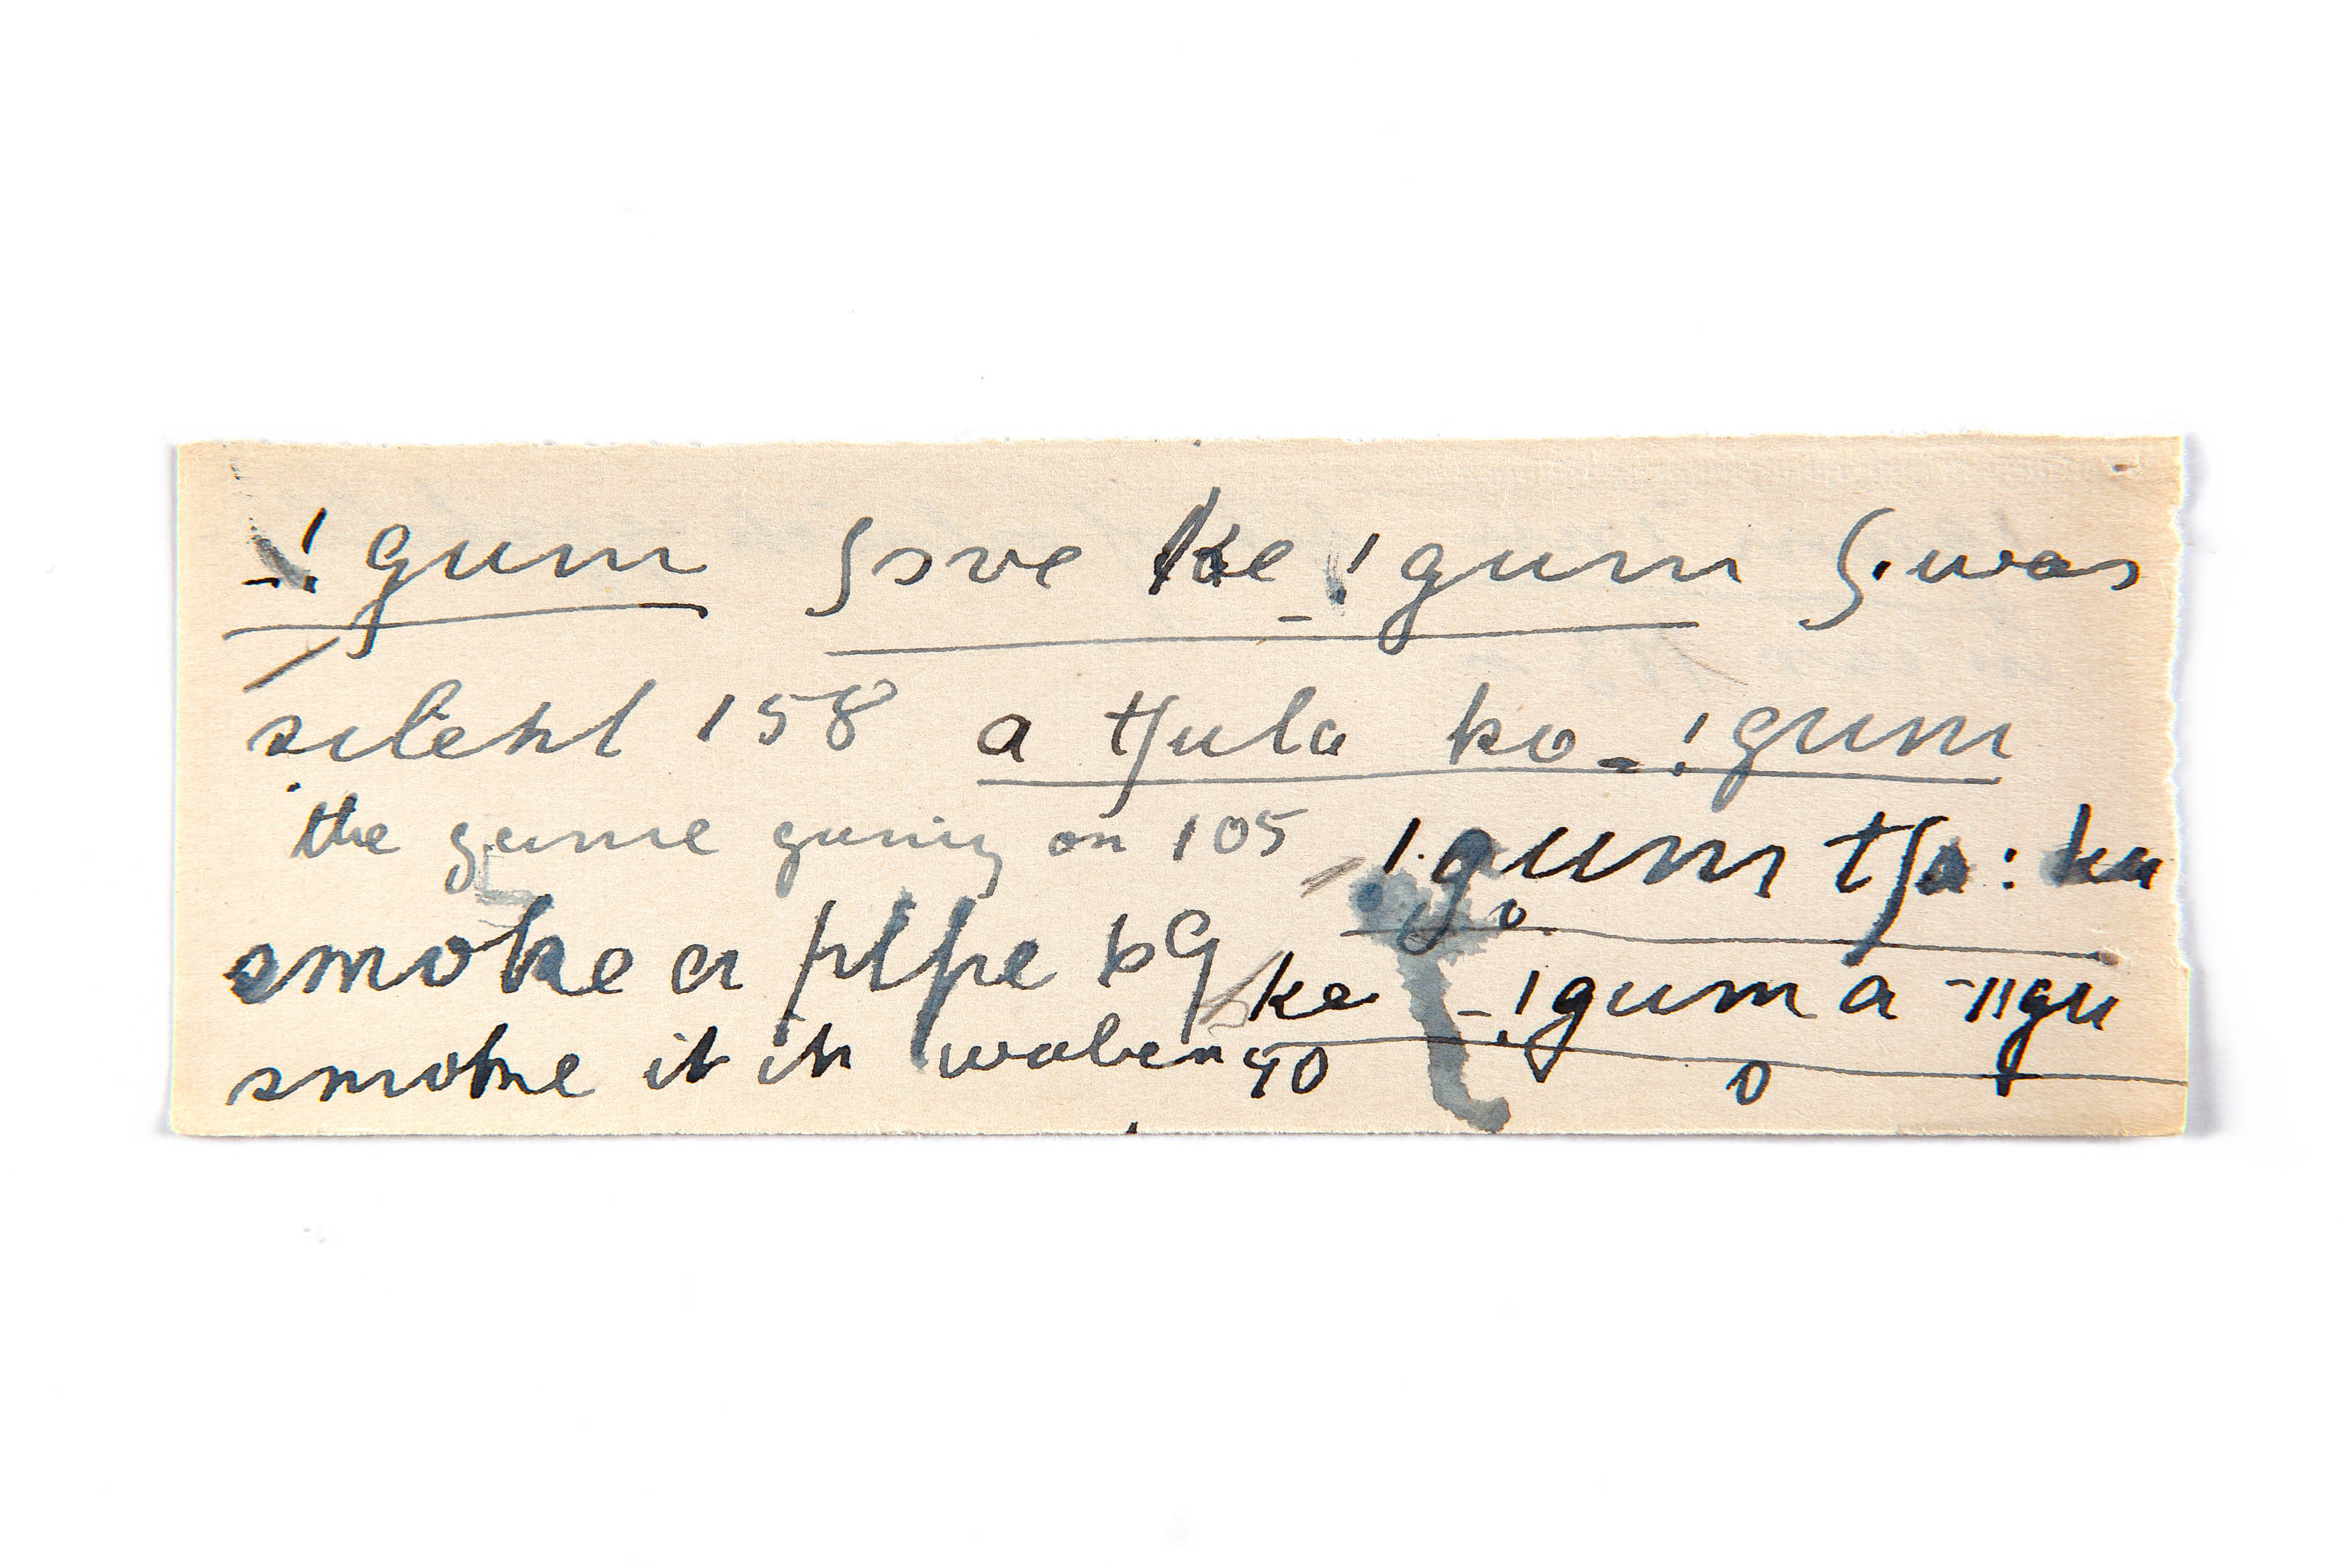 _!gum ʃɔve ke _!gum ʃ. was
silent 158 a tʃula ko _!gum
the game going on 105 !gum tʃa: ka
smoke a pipe 69 ke _!guma -ǁgu
smoke it in water 90